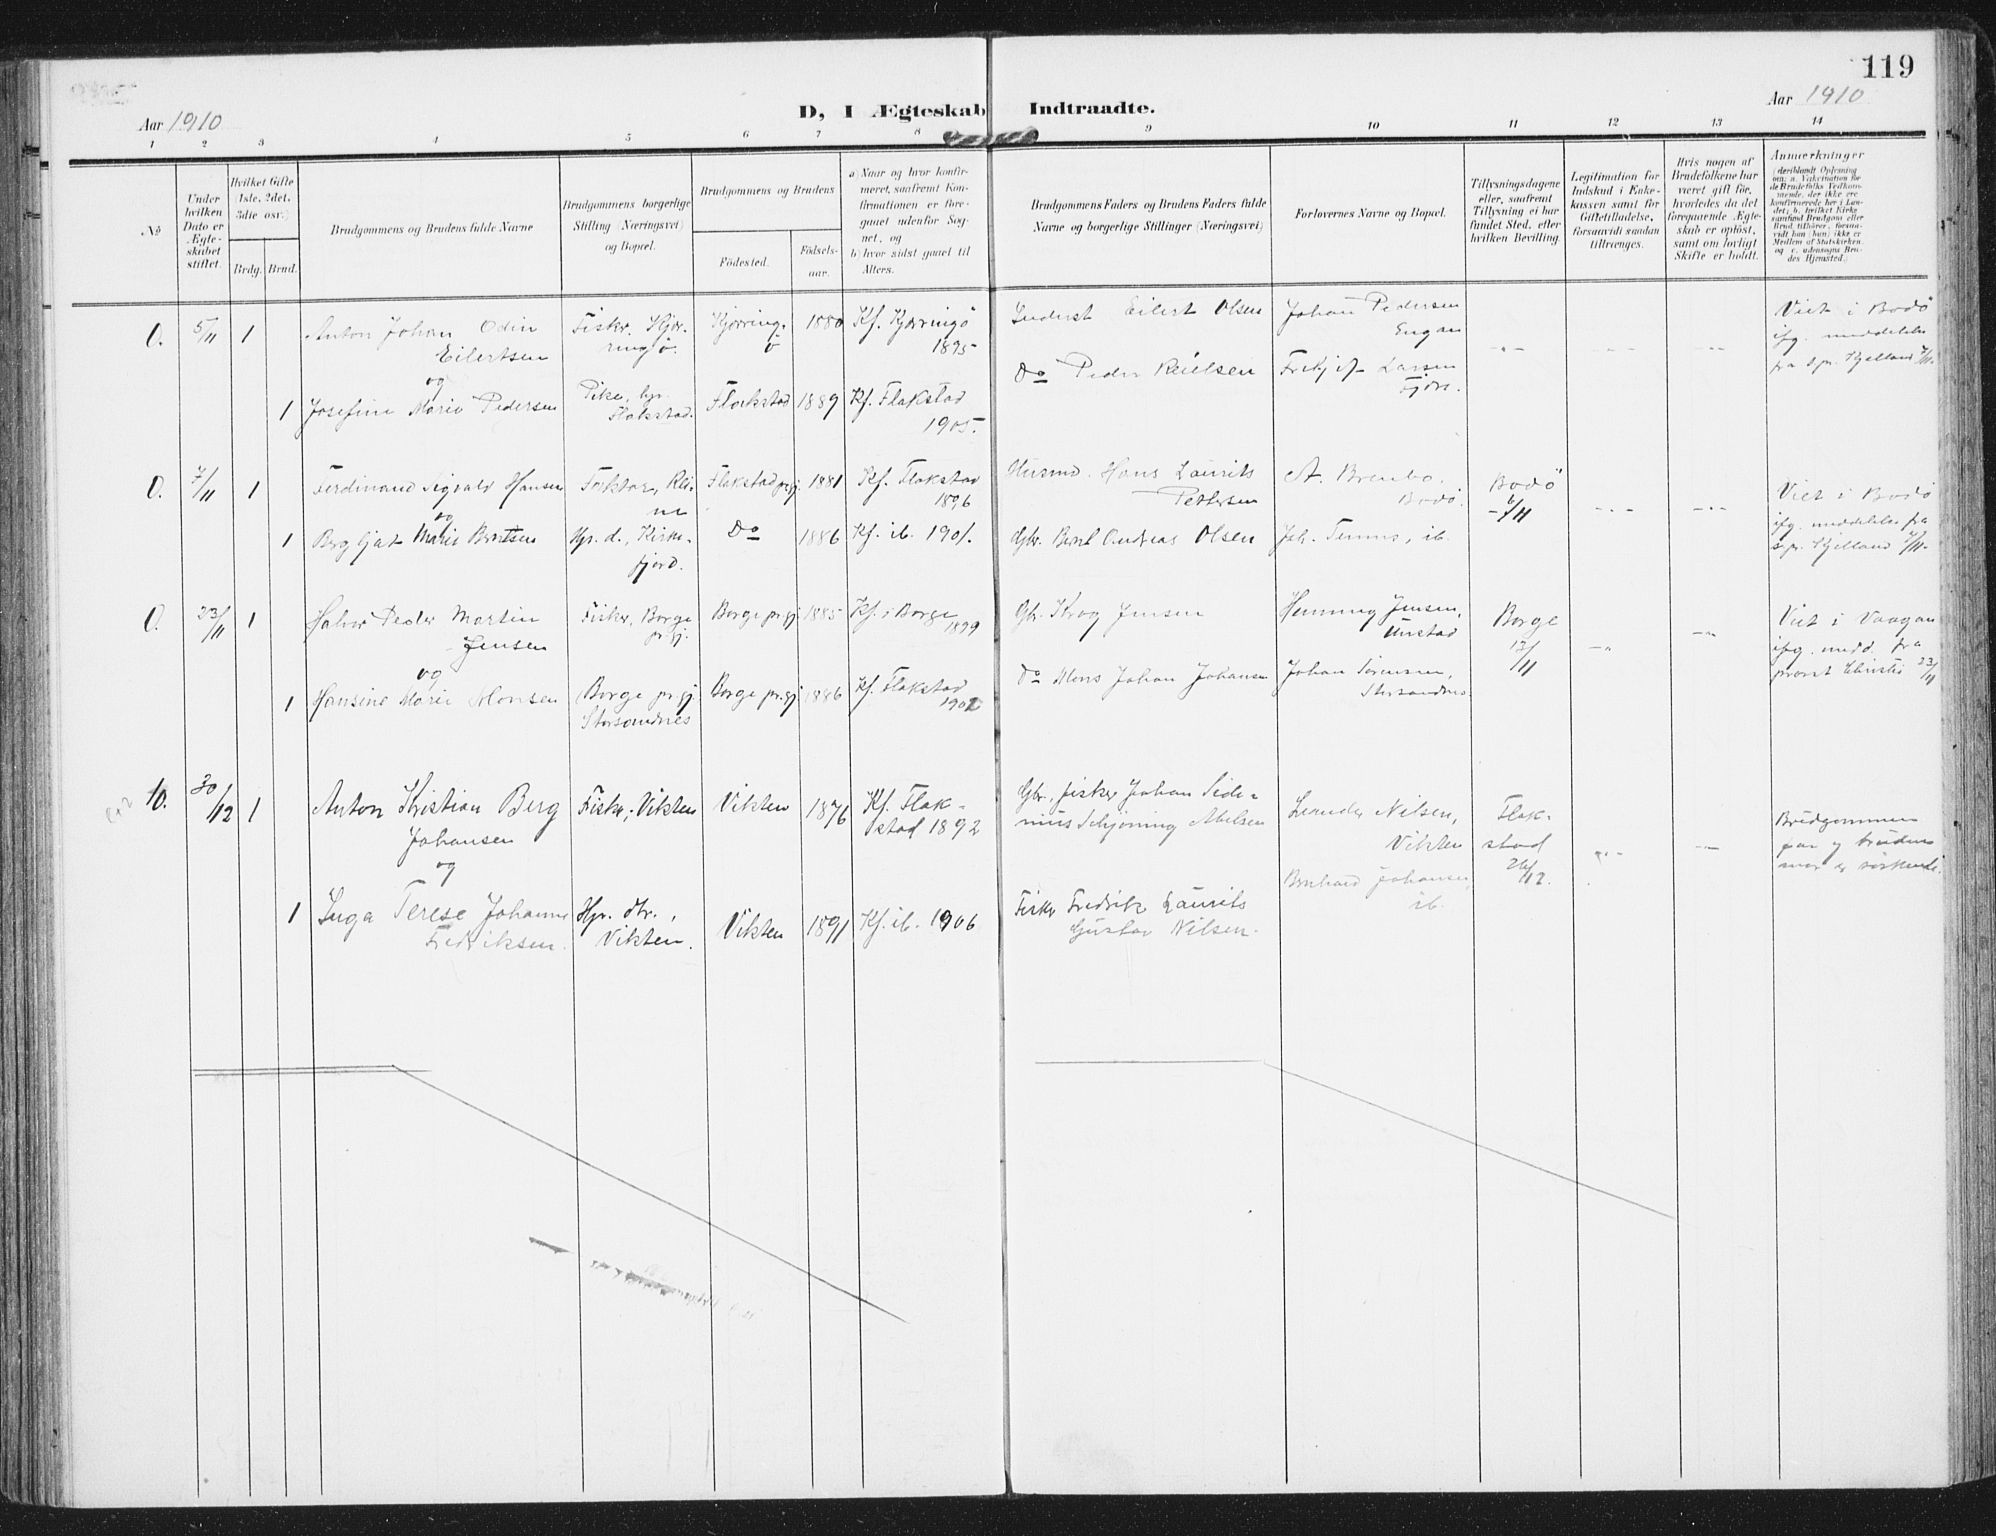 119
D, I Ægteskab Indtraadte.
Aar 1910
Aar 1910
1 2 3 4 5 6 7 8 9 10 11 12 13 14
№
Under
hvilken
Dato er
Ægte-
skabet
stiftet.
Hvilket Gifte
(1ste, 2det,
3die osv.)
Brdg. Brud.
Brudgommens og Brudens fulde Navne
Brudgommens borgerlige
Stilling (Næringsvei)
og Bopæl.
Brudgommens og Brudens
Fødested.
Fødsels-
aar.
a) Naar og hvor konfir-
meret, saafremt Kon-
firmationen er fore-
gaaet udenfor Sog-
net, og
b) hvor sidst gaaet til
Alters.
Brudgommens Faders og Brudens Faders fulde
Navne og borgerlige Stillinger (Næringsvei)
Forlovernes Navne og Bopæl.
Tillysningsdagene
eller, saafremt
Tillysning ei har
fundet Sted, efter
hvilken Bevilling.
Legitimation for
Indskud i Enke-
kassen samt for
Giftetilladelse,
forsaavidt saadan
tiltrænges.
Hvis nogen af
Brudefolkene har
været gift før,
hvorledes da det
foregaaende Ægte-
skab er opløst,
samt om lovligt
Skifte er holdt.
Anmerkninger
(deriblandt Oplysning
om: a. Vakcination for
de Brudefolks Vedkom-
mende, der ikke ere
konfirmerede her i Lan-
det; b. hvilket Kirke-
samfund Brudgom eller
Brud tilhører, forsaa-
vidt han (hun) ikke er
Medlem af Statskirken,
og c. udensogns Bru-
des Hjemsted.)
0. 5/11 1 Anton Johan Odin
Eilertsen
og
Fiskr. Kjær-
ringø.
Kjærring-
ø
1880 Kf. Kjærringø
1895
Eilert Olsen
Johan Pedersen
Engan
Viet i Bodø
ifg. meddelelse
fra spr. Kjelland 7/11.
1 Josefine Marie Pedersen
Pike,
Flakstad.
Flakstad 1889 Kf. Flakstad
1905.
Do Peder
Larsen
0. 7/11 1 Ferdinand Sigvald Hansen
og
Flakstad prgj. 1881 Kf. Flakstad
1896
Husmd. Hans Laurits
Pettersen
A. Brembo.
Bodø.
Bodø
6/11
Viet i Bodø
ifg. meddelelse fra
spr. Kjelland 7/11.
1 Bergljot Marie Berntsen
Hjr. d., Kirke-
fjord.
Do 1886 Kf. ib. 1901.
Gbr. Bernt Andreas Olsen
Joh. ib.
0. 23/11 1 Halvor Peder Martin
Jensen
og
Fisker, Borge
prgj.
Borge prgj. 1885 Kf. i Borge
1899
Gbr. Krog Jensen
Henning Jensen,
Unstad
Borge
13/11
Viet i Vaagan
ifg. medd. fra
provst Christie 23/11
1 Hansine Marie Monsen
Borge prgj.
Storsandnes
Borge prgj. 1886 Kf. Flakstad
1902
Do Mons Johan Johansen
Johan Sørensen,
Storsandnes
10. 30/12 1 Anton Kristian Berg
Johansen
og
Fiskr., Vikten
Vikten 1876 Kf. Flak-
stad 1892
Gbr., fisker Johan Side-
nius Schjøning Abelsen
Leander Nilsen,
Vikten
Flak-
stad
26/12.
Brudgommens
far og brudens
mor er søskende.
1 Inga Terese Johanne
Fredriksen.
Hjr. dtr.,
Vikten.
Vikten 1891 Kf. ib. 1906
Fiskr Fredrik Laurits
Gustav Nilsen.
Bernhard Johansen,
ib.